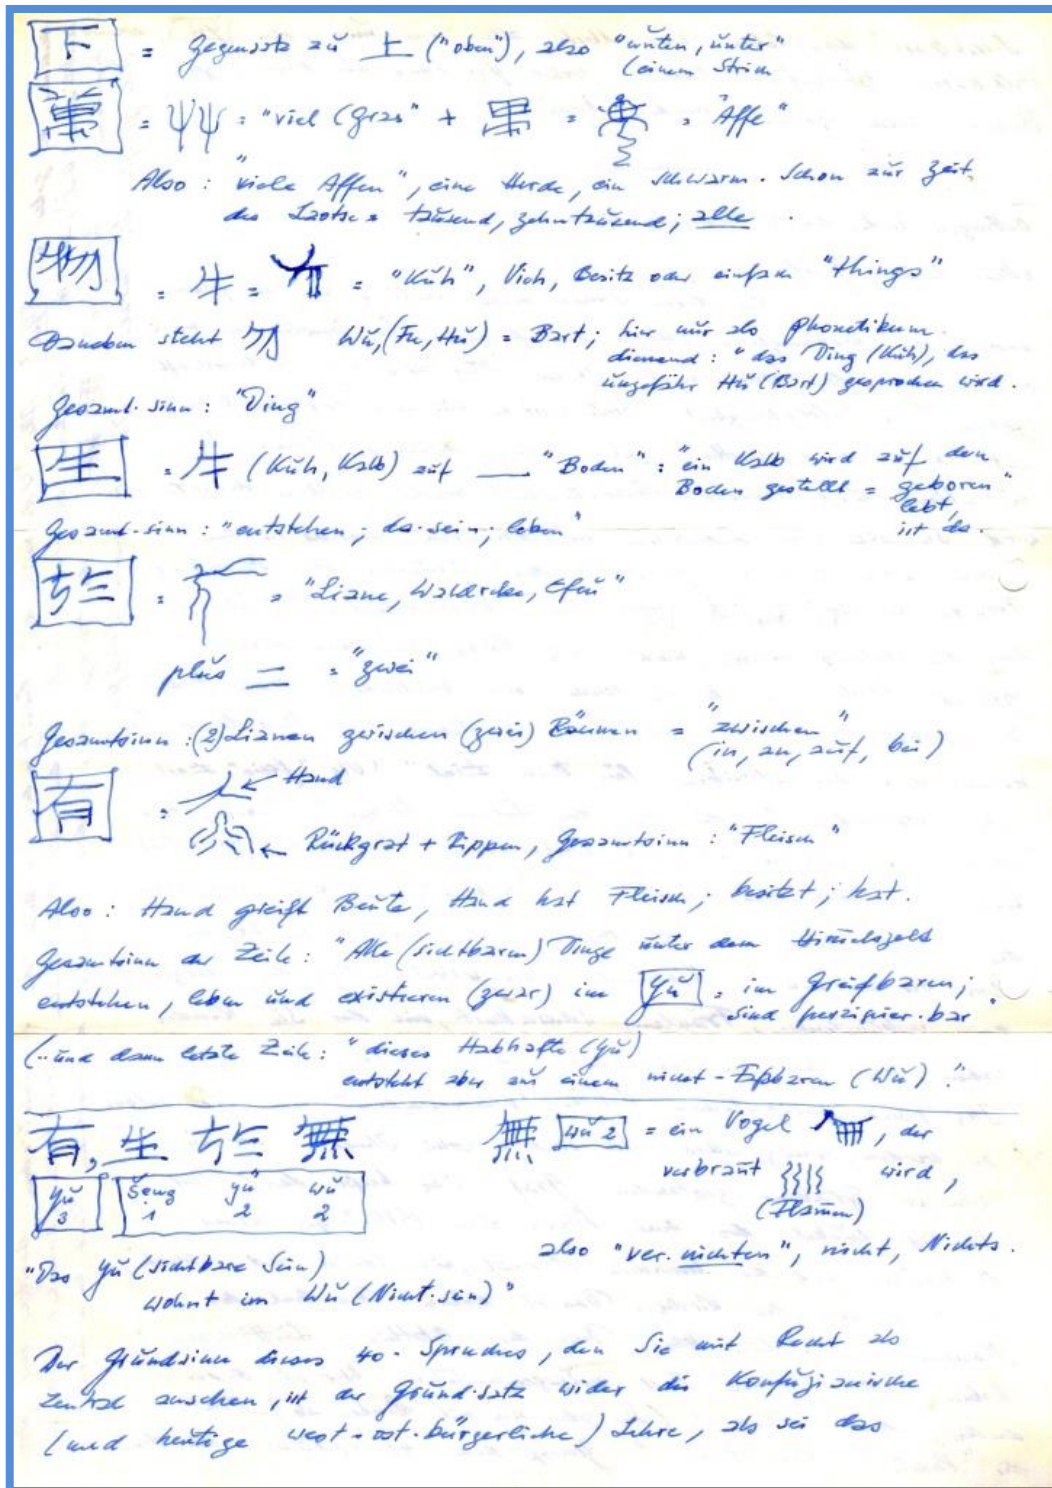 下 = Gegensatz zu 上 ("oben"), also "unten, unter"
(einem Strich
萬 = 艸 = "viel (Gras" + 禺 = = "Affe"
Also: "viele Affen", eine Herde, ein Schwarm. Schon zur Zeit
des Laotse = tausend, zehntausend; alle.
物 = 牛 = = "Kuh", Vieh, Besitz oder einfach "things"
Daneben steht 勿 Wu, (Fu, Hu) = Bart; hier nur als Phonetikum
dienend: "das Ding (Kuh), das
ungefähr Hu (Bart) gesprochen wird.
Gesamt-sinn: "Ding"
生 = 牛 (Kuh, Kalb) auf — "Boden": "ein Kalb wird auf den
Boden gestellt = geboren"
lebt,
ist da.
Gesamt-sinn: "entstehen; da-sein; leben"
於 = = "Liane, Waldrebe, Efeu"
plus 二 = "zwei"
Gesamtsinn: (2) Lianen zwischen (zwei) Bäumen = "zwischen"
(in, an, auf, bei)
有 = ← Hand
← Rückgrat + Rippen, Gesamtsinn: "Fleisch"
Also: Hand greift Beute, Hand hat Fleisch; besitzt; hat.
Gesamtsinn der Zeile: "Alle (sichtbaren) Dinge unter dem Himmelszelt
entstehen, leben und existieren (zwar) im Yu = im Greifbaren;
sind perzipier-bar"
(..und dann letzte Zeile: "dieses Habhafte (Yu)
entsteht aber aus einem nicht-Faßbaren (Wu)."
有, 生 於 無 無 wu 2 = ein Vogel, der
yu šeng yü wu verbrannt wird,
3 1 2 2 (Flammen)
also "ver-nichten", nicht, Nichts.
"Das Yu (sichtbare Sein)
wohnt im Wu (Nicht-sein)"
Der Grundsinn dieses 40. Spruches, den Sie mit Recht als
zentral ansehen, ist der Grund-satz wider die Konfuzianische
(und heutige west-ost-bürgerliche) Lehre, als sei das